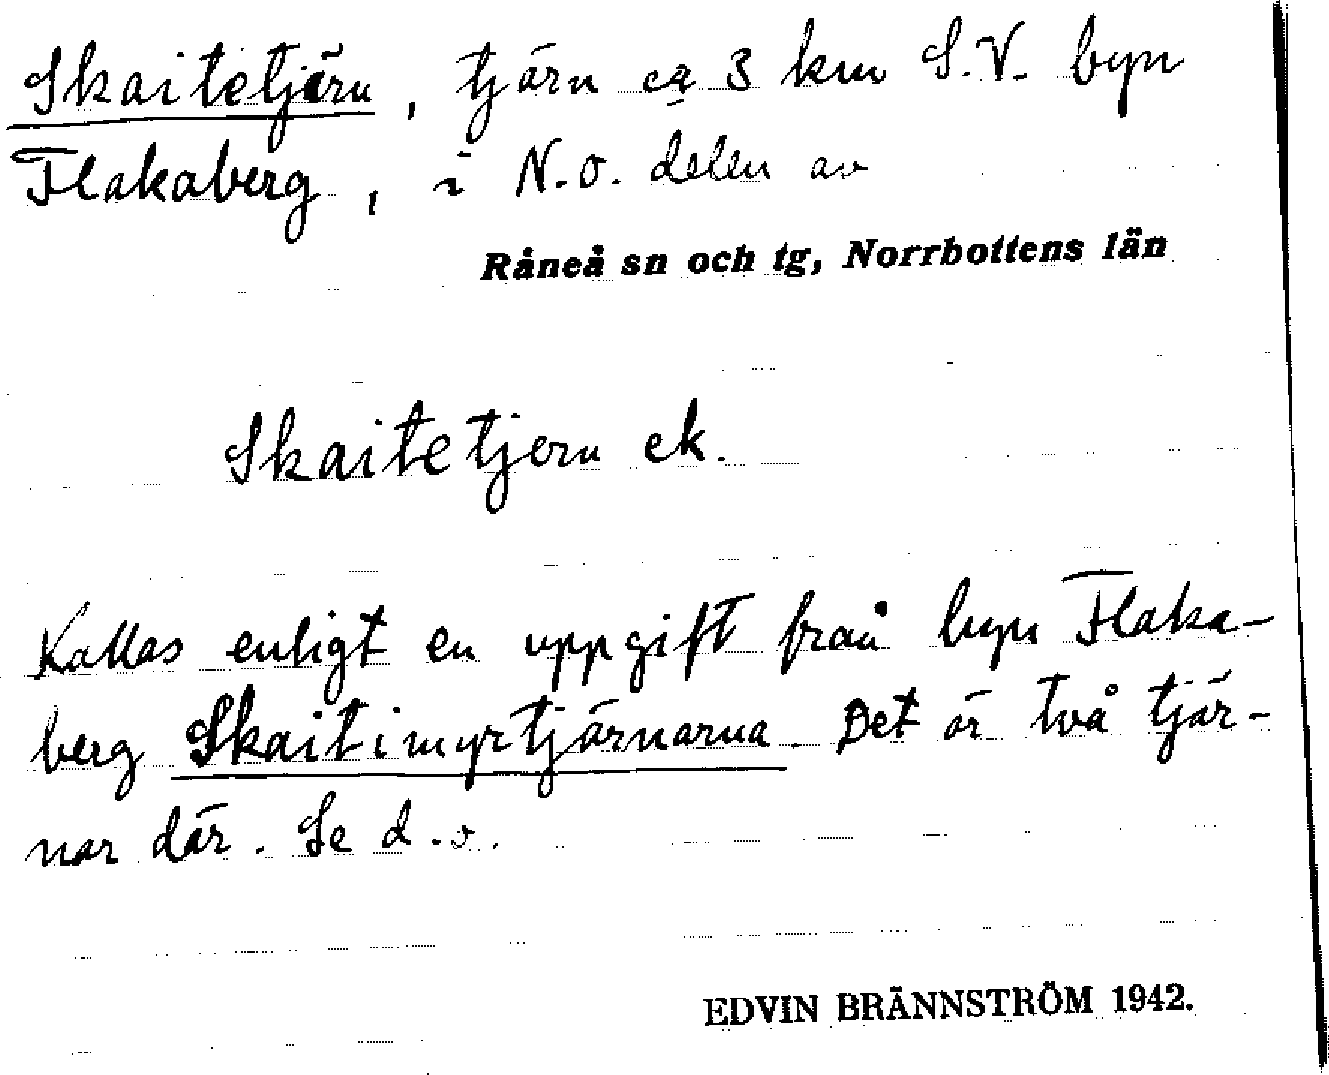 Skaitetjärn, tjärn ca 3 km S.V. byn
Flakaberg, i N.O. delen av
Råneå sn och tg, Norrbottens län
Skaitetjern ek.
Kallas enligt en uppgift från byn Flaka-
berg Skaitimyrtjärnarna. Det är två tjär-
nar där. Se d.o.
EDVIN BRÄNNSTRÖM 1942.